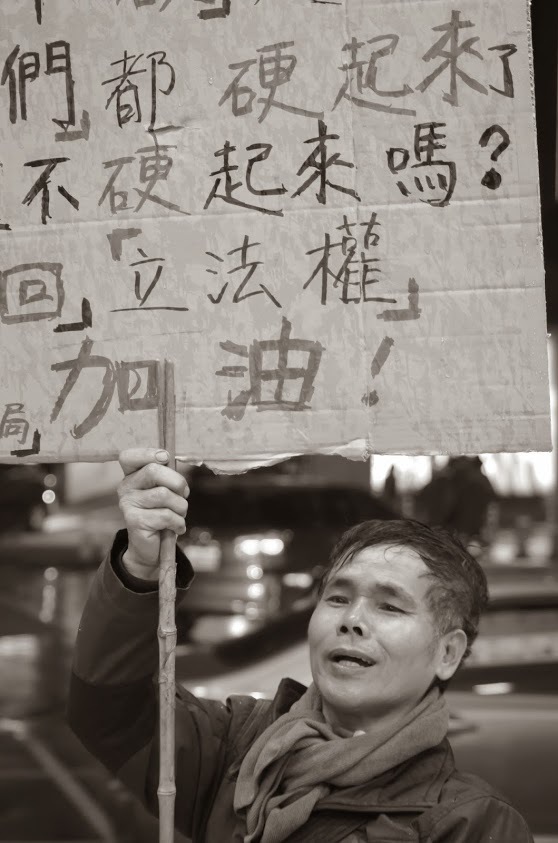 們」都硬起來了
不硬起來嗎?
回」「立法權」
加油!
局」